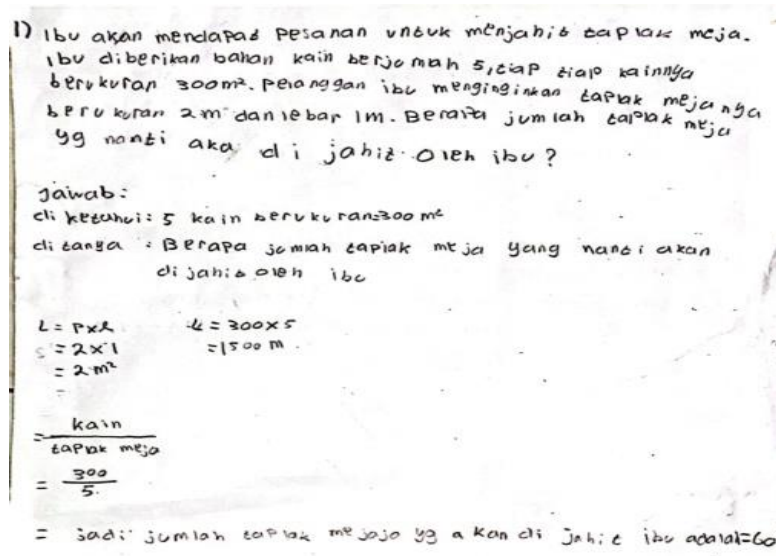 1) Ibu akan mendapat pesanan untuk menjahit taplak meja.
Ibu diberikan bahan kain berjumlah 5, tiap tiap kainnya
berukuran 300m². Pelanggan ibu menginginkan taplak mejanya
berukuran 2m dan lebar 1m. Berapa jumlah taplak meja
yg nanti aka di jahit oleh ibu?
Jawab:
di ketahui: 5 kain berukuran=300 m²
di tanya : Berapa jumlah taplak meja yang nanti akan
dijahit oleh ibu
L = P x l
= 2 x 1
= 2 m²
= 300 x 5
= 1500 m
= kain
taplak meja
= 300
5.
= Jadi jumlah taplak me jaja yg a kan di jahit ibu adalah=60